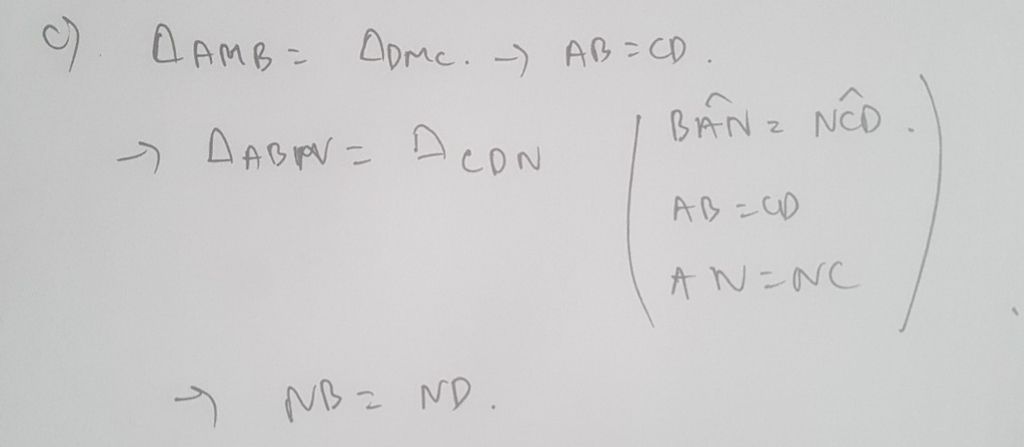 c). ΔAMB = ΔDMC. → AB = CD.
→ ΔABN = ΔCDN ( BÂN = NĈD.
AB = CD
AN = NC )
→ NB = ND.